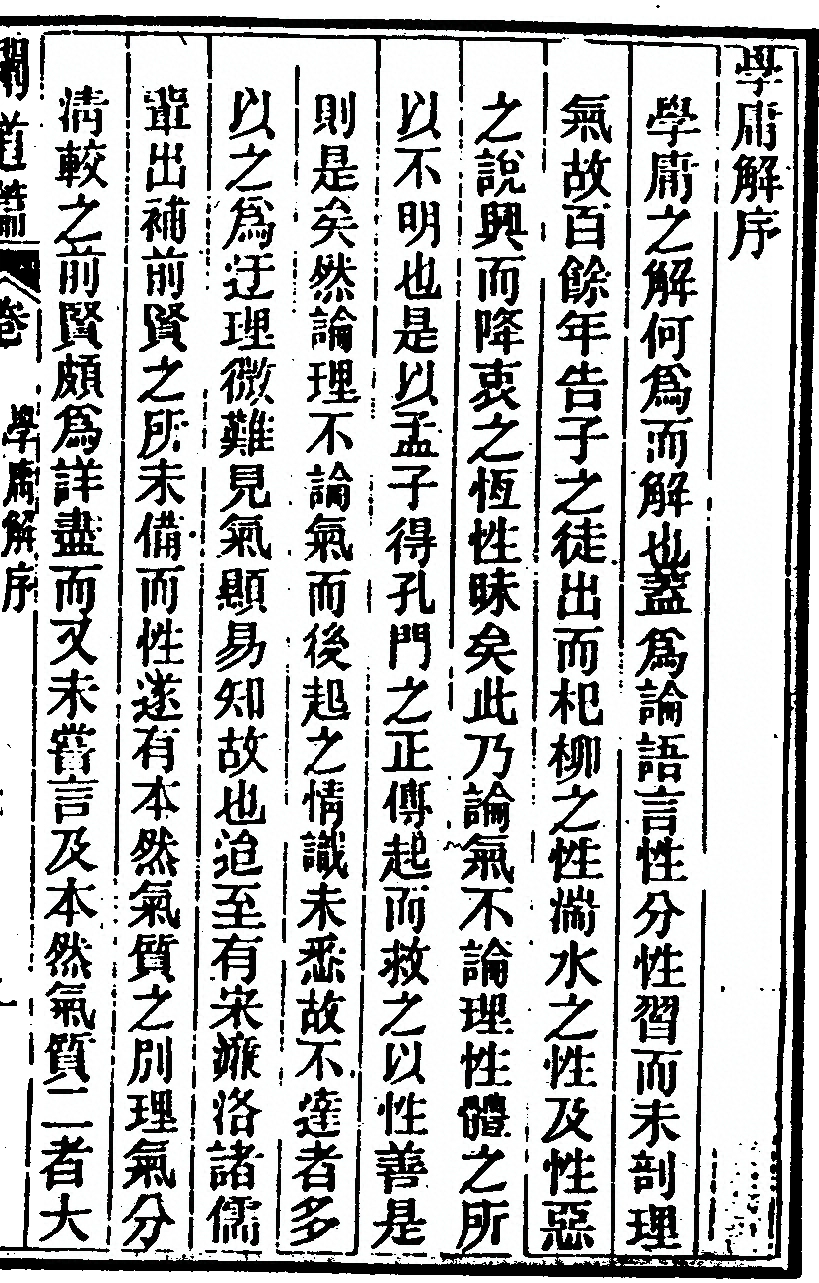 學庸解序
學庸之解何爲而解也蓋爲論語言性分性習而未剖理
氣故百餘年告子之徒出而杞柳之性湍水之性及性惡
之說興而降衷之恆性昧矣此乃論氣不論理性體之所
以不明也是以孟子得孔門之正傳起而救之以性善是
則是矣然論理不論氣而後起之情識未悉故不達者多
以之爲迂理微難見氣顯易知故也迨至有宋濂洛諸儒
輩出補前賢之所未備而性遂有本然氣質之別理氣分
淸較之前賢頗爲詳盡而又未嘗言及本然氣質二者大
闢道篇 卷 學庸解序 一